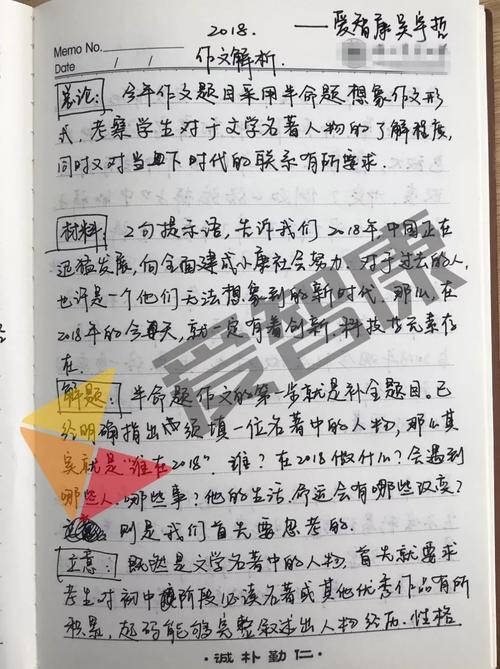 2018. ——爱智康吴宇哲
Memo No.
作文解析.
Date / /
总论: 今年作文题目采用半命题想象作文形
式,考察学生对于文学名著人物的了解程度,
同时又对当下时代的联系有所要求.
材料: 2句提示语,告诉我们2018年中国正在
迅猛发展,向全面建成小康社会努力.对于过去的人,
也许是一个他们无法想象到的新时代.那么,在
2018年的今天,就一定有着创新,科技等元素存
在.
解题: 半命题作文的第一步就是补全题目.已
经明确指出必须填一位名著中的人物,那么其
实就是“谁在2018”.谁?在2018做什么?会遇到
哪些人.哪些事?他的生活.命运会有哪些改变?
则是我们首先要思考的.
立意: 既然是文学名著中的人物,首先就要求
考生对初中阶段必读名著或其他优秀作品有所
积累,起码能够完整叙述出人物经历.性格
·诚朴勤仁·
爱智康